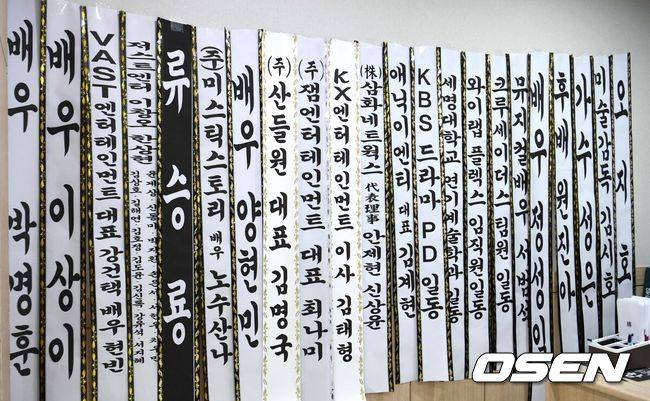 배우 박명훈
배우 이상이
VAST엔터테인먼트 대표 강건택 배우 현빈
류승룡
㈜미스틱스토리 배우 노수산나
배우 양현민
(주)산들원 대표 김명국
(주)잼엔터테인먼트 대표 최나미
KX엔터테인먼트 이사 김태형
(株)삼화네트웍스 代表理事 안제현 신상윤
애닉이엔티 대표 김계현
KBS 드라마 PD 일동
세명대학교 연기예술학과 일동
와이랩 플렉스 임직원일동
크루세이더스팀원 일동
뮤지컬배우 서범석
배우 정성일
후배 원진아
가수 성은
미술감독 김시호
오지호
OSEN